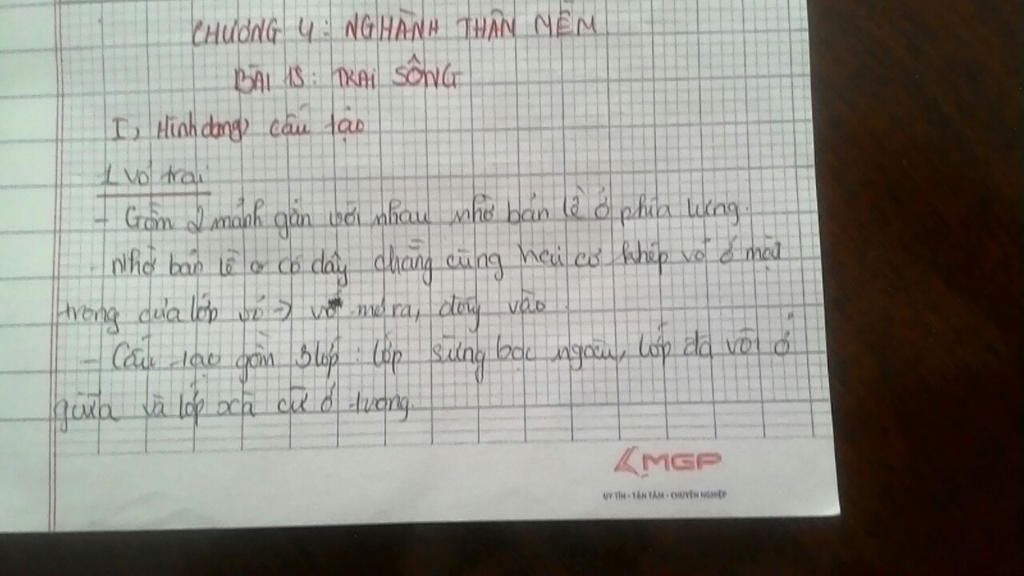 CHƯƠNG 4: NGHÀNH THÂN MỀM
BÀI 18: TRAI SÔNG
I, Hình dạng, cấu tạo
1 vỏ trai
- Gồm 2 mảnh gắn với nhau nhờ bản lề ở phía lưng.
Nhờ bản lề có dây chằng cùng hai cơ khép vỏ ở mặt
trong của lớp vỏ → vỏ mở ra, đóng vào.
- Cấu tạo gồm 3 lớp: lớp sừng bọc ngoài, lớp đá vôi ở
giữa và lớp xà cừ ở trong.
MGP
UY TÍN - TẬN TÂM - CHUYÊN NGHIỆP